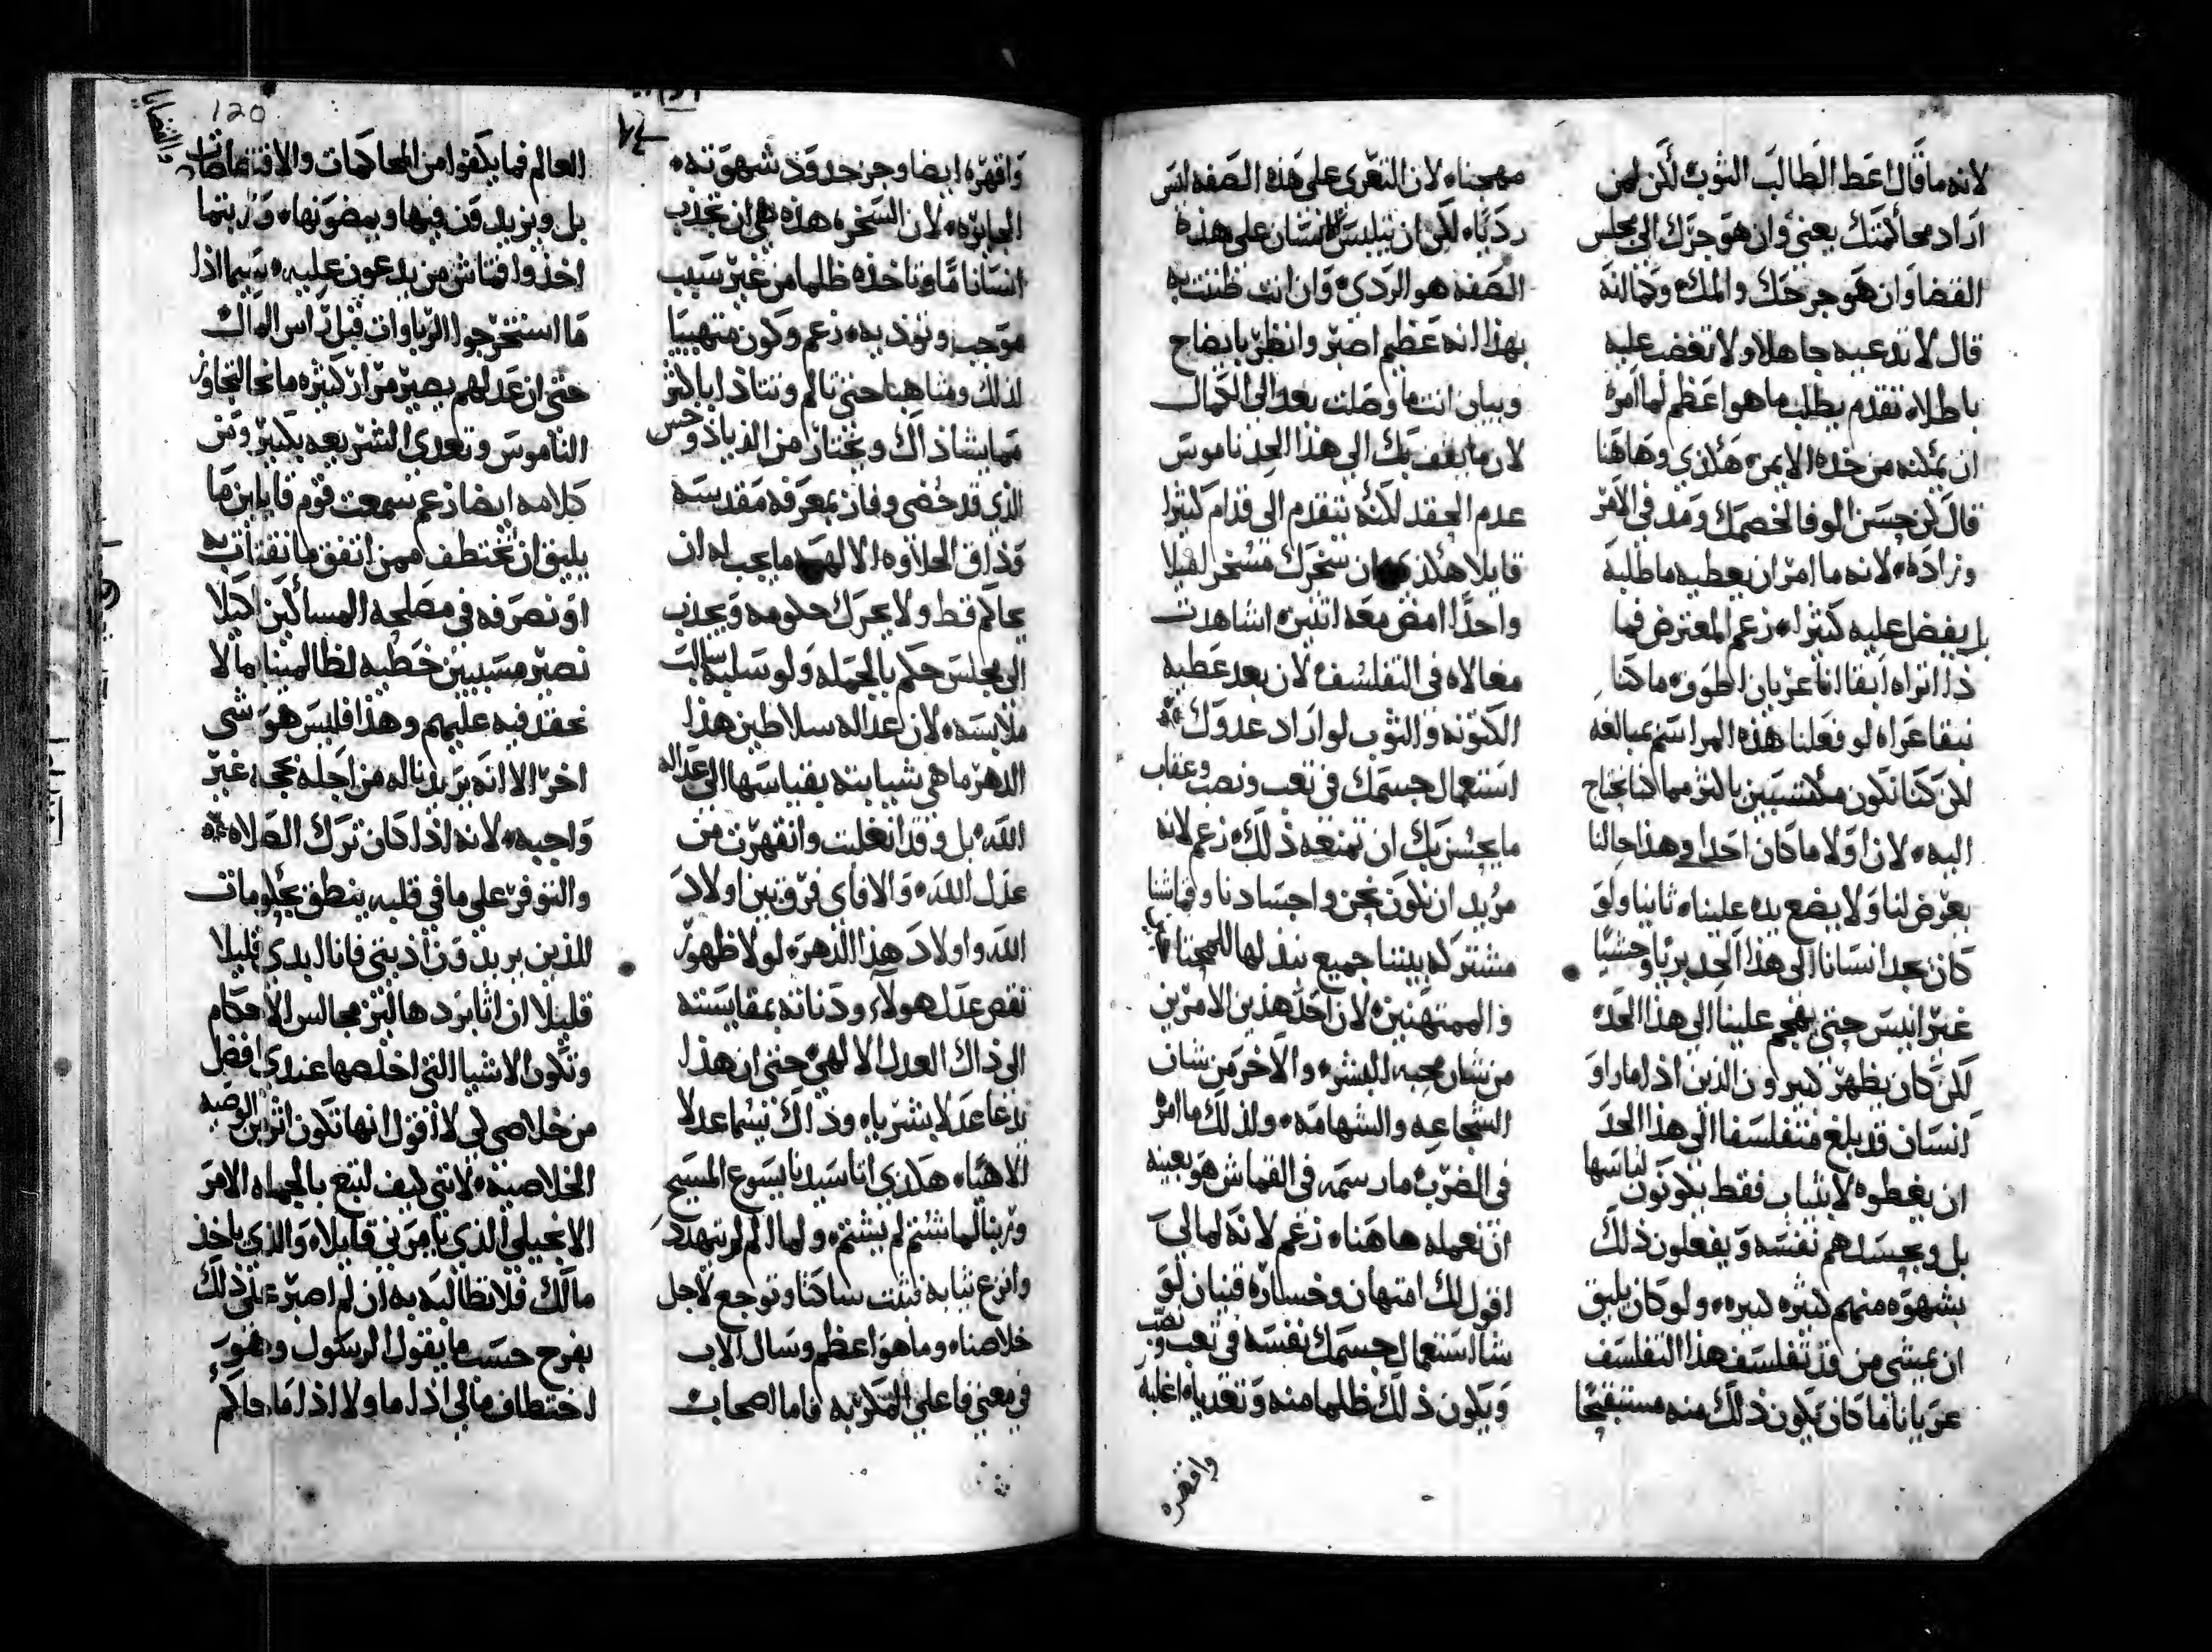 لانه ما قال اعط الطالب الثوب لكن لمن
اراد محاكمتك يعني وان هو جرك الى مجلس
القضا وان هو جرحك والمك وكما انه
قال لا تدعيه جاهلا ولا تغضب عليه
باطلا تقدم يطلب ما هو اعظم لما امره
ان يمكنه من خده الايمن هكذي وهاهنا
قال كن حسن الوفا لخصمك ومد في الامر
وزاده لانه ما امر ان يعطيه ما طلبه
بل يفضل عليه كثيرا زعم المعترض فما
ذا اتراه ابقا انا عريان اطوف ما كنا
نبقا عراه لو فعلنا هذه المراسم بمبالغه
لكن كنا نكون مكتسبين باكثر مما كنا نحتاج
اليه لان اولا ما كان احدا في هذا حالنا
يعرض لنا ولا يضع يده علينا ثانيا ولو
كان نجد انسانا الى هذا الحد بريا وحشيا
غير انيس حتى يهجم علينا الى هذا الحد
لكن كان يظهر كثيرون الذين اذا ما راوا
انسان قد بلغ متفلسفا الى هذا الحد
ان يغطوه لا بثياب فقط يكونون لباسها
بل وبجسدهم نفسه ويفعلون ذلك
بشهوه منهم كثيره كبيره ولو كان يليق
ان يمشي من قد تفلسف هذا التفلسف
عريانا ما كان يكون ذلك منه مستقبحا
مهجنا لان التعري على هذه الصفه ليس
رديا لكن ان تتلبس الانسان على هذه
الصفه هو الردي وان انت ظننت به
بهذا انه عظيم اصبر وانظر بايضاح
وبيان انت ما وصلت بعد الى الكمال
لان ما يقف بك الى هذا الحد ناموس
عدم الحقد لكنه يتقدم الى قدام كثيرا
قايلا هكذي ان سخرك مسخر لميلا
واحدا امض معه اثنين اشاهدت
مغالاه في التفلسف لان بعد عطيه
الكتونه والثوب لو اراد عدوك
استعمال جسمك في تعب ونصب وعقاب
ما يحسن بك ان تمنعه ذلك زعم لانه
مريد ان نكون نحن واجسادنا وقماشنا
مشتركه بيننا جميع نبذلها للمحتاجين
والممتهنين لان احد هذين الامرين
من شان محبه البشر والاخر من شان
الشجاعه والشهامه ولذلك ما امره
في الضرب ما رسمه في القماش هو بعينه
ان نعمله هاهنا زعم لانه لما لي
اقول لك امتهان وخساره قنيان لو
شا استعمال جسمك نفسه في تعب ونصب
ويكون ذلك ظلما منه وتعديا اغلبه
واقهره
واقهره ايضا وجز حدود شهوته
الجايره لان السخره هذه هي ان تجذب
انسانا ما وتاخذه ظلما من غير سبب
موجب وتوذيه زعم وكون متهييا
لذلك ومتاهبا حتى تالم وتتاذا باكثر
مما يشا ذاك ويختار من الذي
الذي قد حضي وفاز بمعرفه مقدسه
وذاق الحلاوه الالهيه ما يجب له ان
يحاكم قط ولا يحرك حكومه ويجذب
الى مجلس حكم بالجمله ولو سلبه سالب
ملابسه لان عداله سلاطين هذا
الدهر ما هي شيا بته بقياسها الى عداله
الله بل وقد انغلبت وانقهرت من
عدل الله والا فاي فرق بين اولاد
الله واولاد هذا الدهر لولا ظهور
نقص عدل هولاء ودناته بمقايسته
الى ذاك العدل الالهي حتى ان هذا
يدعا عدلا بشريا وذاك يسما عدلا
الاهيا هكذي اتا سيدنا يسوع المسيح
وربنا لما شتم لم يشتم ولما الم لم يتهدد
وانزع ثيابه فثبت ساكتا وتوجع لاجل
خلاصنا وما هو اعظم وسال الاب
في معني فاعلي المكر به فاما اصحاب
120
العالم فما يكفوا من المحاكمات والاقتضاات
والقضايا
بل ويزيدون فيها ويمضونها وربتما
اخذوا قماش من يدعون عليه سيما اذا
ما استخرجوا الربا وات قبل راس المال
حتى ان عدلهم يصير مرار كثيره مانحا التجاوز
الناموس وتعدي الشريعه بكبير ومن
كلامه ايضا زعم سمعت قوم قايلين ما
يليق ان نختطف ممن اتفق ما نقتات به
او نصرفه في مصلحه المساكين لكيلا
نصير مسببين خطيه لظالمينا ما لا
نحقد فيه عليهم وهذا فليس هو شي
اخر الا انه يريد ناله من اجله حجه غير
واجبه لانه اذا كان ترك الصلاه
والتوفر على ما في قلبه ينطق بحكومات
للذين يريدون اذيتي فانا ابدي قليلا
قليلا ان اثابر دهاليز مجالس الاحكام
وتكون الاشيا التي اخلصها عندي افضل
من خلاصي لي لا اقول انها تكون اثر من الوصيه
الخلاصيه لانني كيف اتبع بالجمله الامر
الانجيلي الذي يامرني قايلا والذي ياخذ
مالك فلا تطالبه به ان لم اصبر على ذلك
بفرح حسب ما يقول الرسول وهو
اختطاف مالي اذا ما ولا اذا ما حاكم